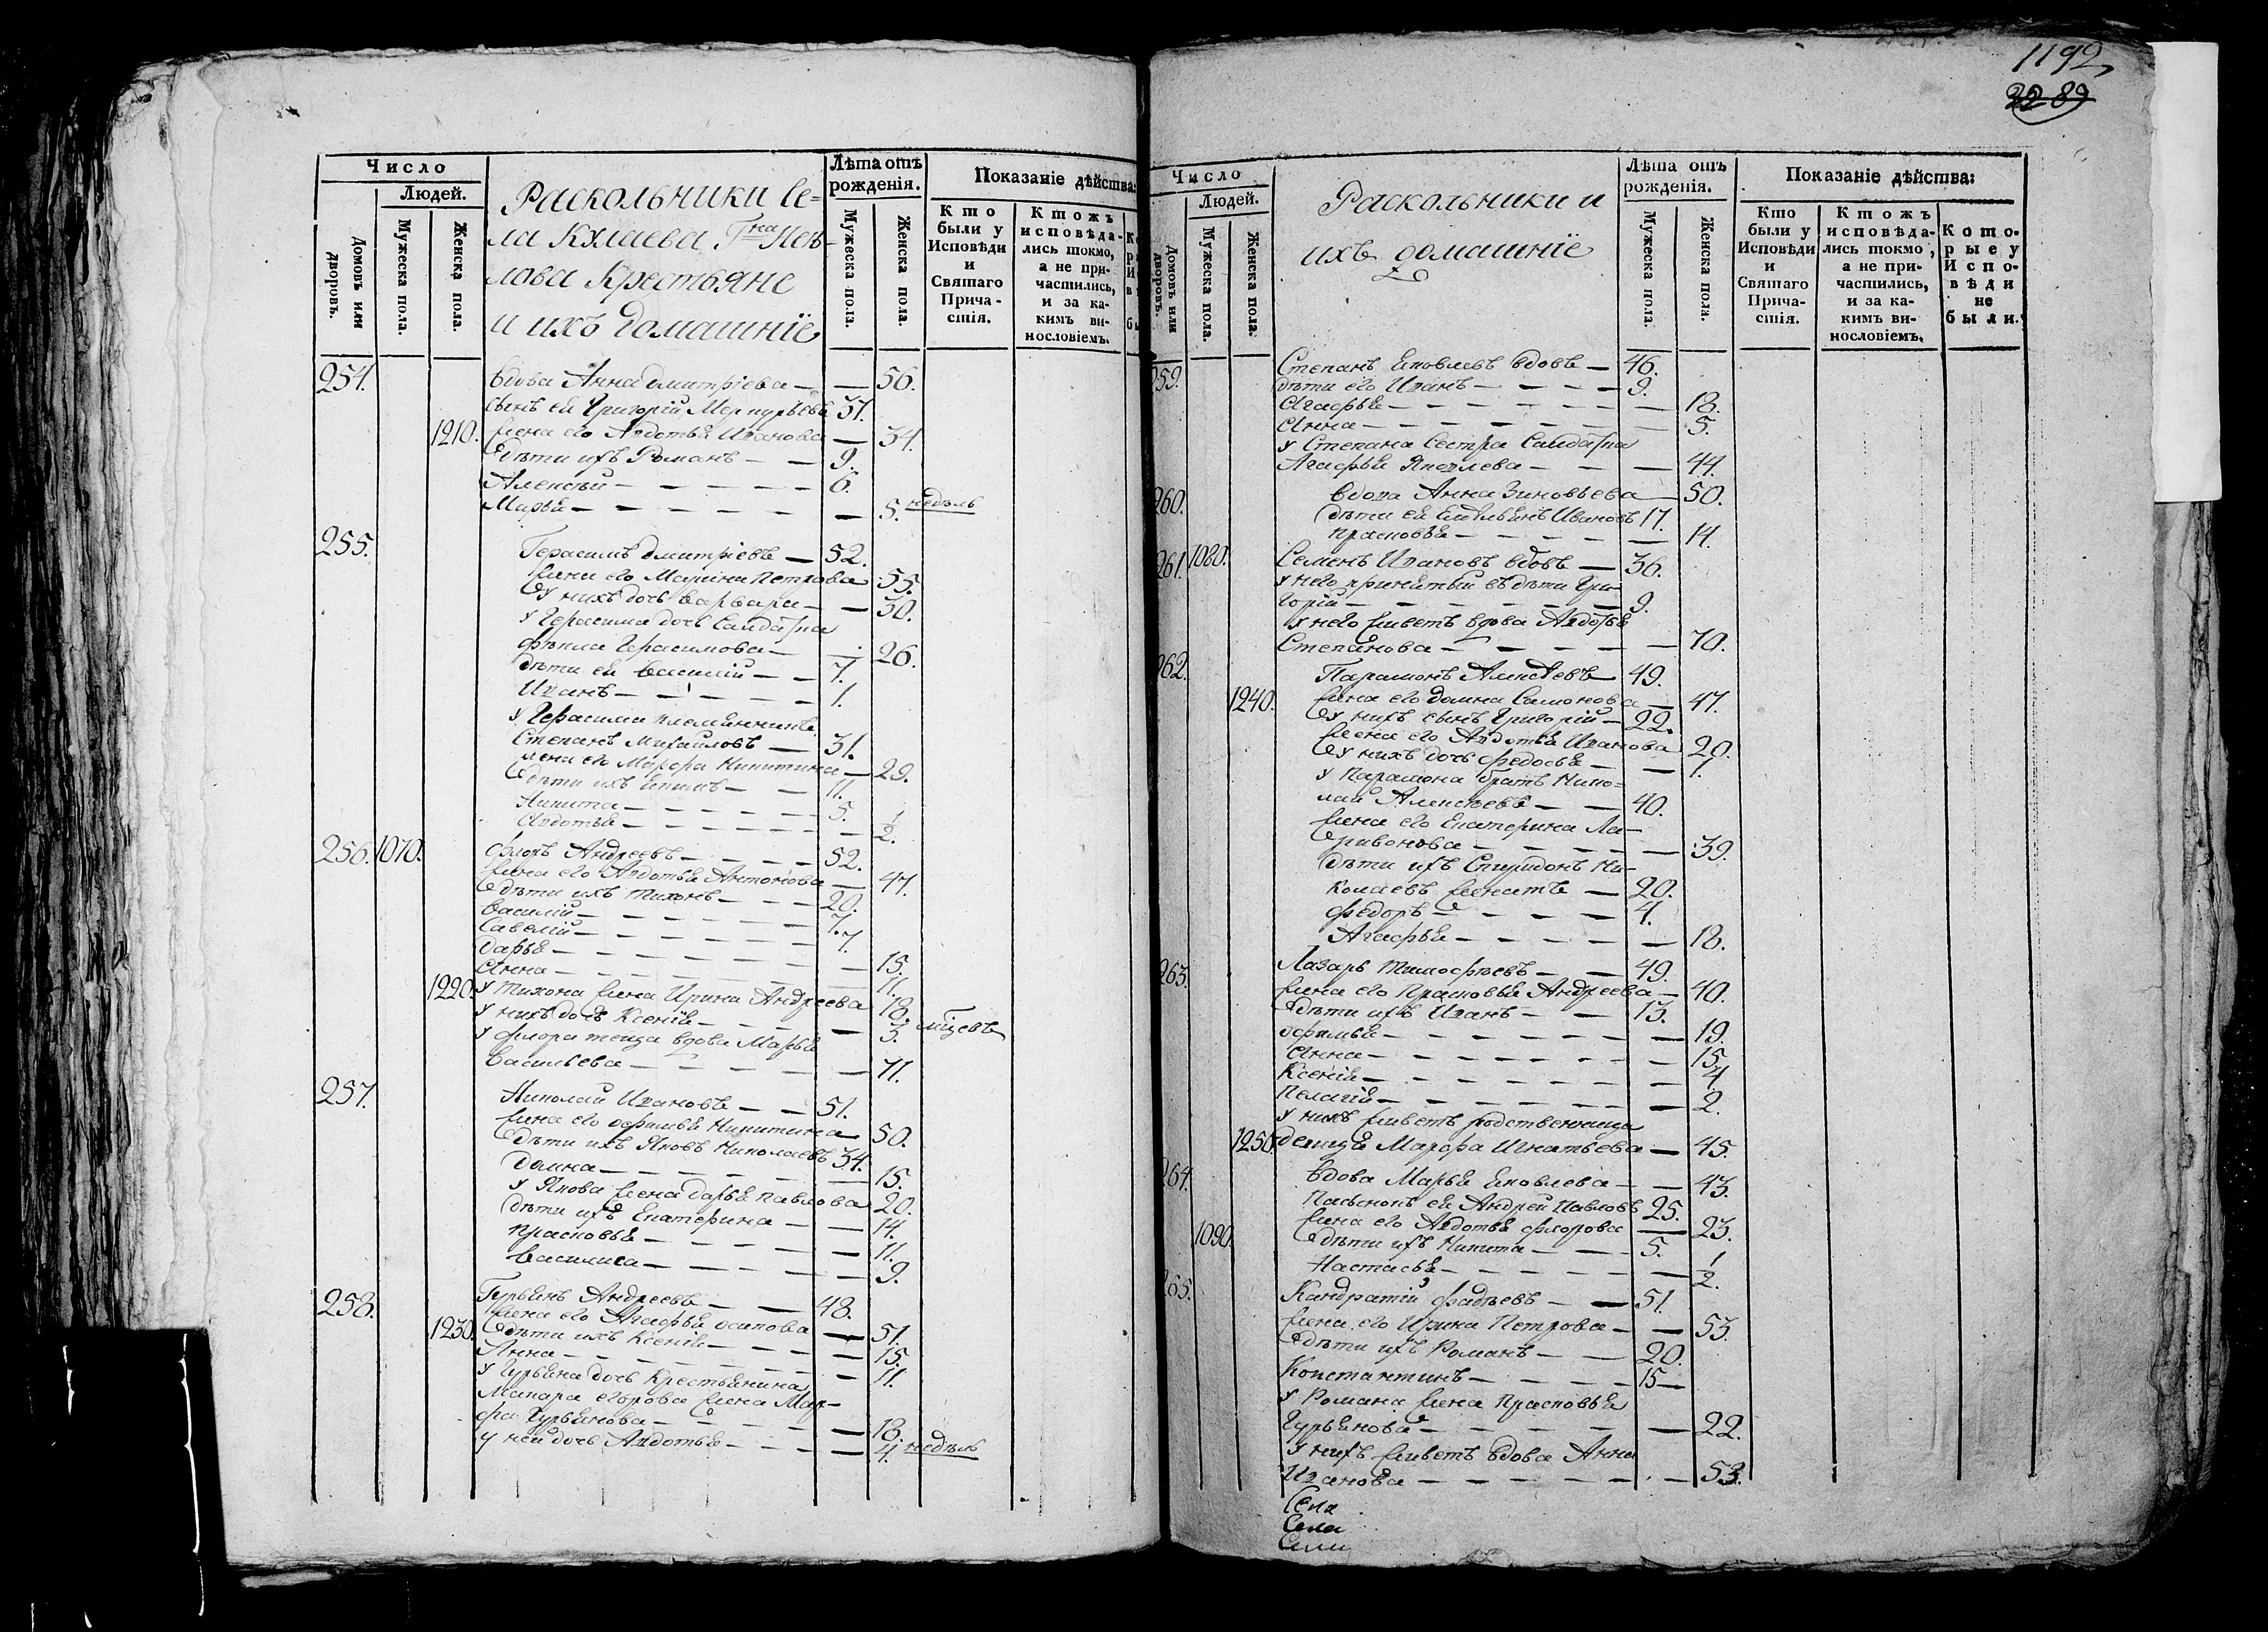 Число
Людей.
Домовъ или дворовъ.
Мужеска пола.
Женска пола.
Раскольники се=
ла Кллаева Гна
лова Крестьяне
и ихъ домашніе
Лѣта отъ рожденія.
Мужеска пола.
Женска пола.
Показаніе дѣйства:
Кто были у Исповѣди и Святаго Причастія.
Ктожъ исповѣдались токмо, а не причастились, и за какимъ винословіемъ.
254. вдова Анна Дмитріева — — 56.
сынъ ея Григорій Меркурьевъ 37.
1210. жена его Авдотья Иванова — 34.
дѣти ихъ Романъ — — 9.
Алексѣй — — — — — 6.
Марья — — — — — — 5. недѣль
255. Герасимъ Дмитріевъ — 52.
жена его Марина Петрова 55.
у нихъ дочь Варвара — — 30.
у Герасима дочь Салдатка
Ѳекла Герасимова — — 26.
дѣти ея Василій — — 7.
Иванъ — — — — 1.
у Герасима племянникъ
Степанъ Михайловъ — 31.
жена его Марѳа Никитина — 29.
дѣти ихъ Екимъ — — 11.
Никита — — — — — 5.
Авдотья — — — — — — 1/2.
256. 1070. Флоръ Андреевъ — — — 52.
жена его Авдотья Антонова — 47.
дѣти ихъ Тихонъ — — — 20.
Василій — — — — — 7.
Савелій — — — — — 7.
Дарья — — — — — — 15.
Анна — — — — — — 11.
1220. у Тихона жена Ирина Андреева 18.
у нихъ дочь Ксенія — — — — 3. мѣсяцевъ
у Флора теща вдова Марья
Васильева — — — — — 71.
257. Николай Ивановъ — — 51.
жена его Офимья Никитина 50.
дѣти ихъ Яковъ Николаевъ 34.
Домна — — — — — 15.
у Якова жена Дарья Павлова 20.
дѣти ихъ Екатерина — — 14.
Прасковья — — — — — 11.
Василиса — — — — — 9.
258. Гурьянъ Андреевъ — — 48.
жена его Агафья Осипова — 51.
1230. дѣти ихъ Ксенія — — — — 15.
Анна — — — — — — 11.
у Гурьяна дочь Крестьянина
Макара Егорова жена Мар-
ѳа Гурьянова — — — — 18.
у ней дочь Авдотья — — — — 4. недѣль
1192
89
Число
Людей.
Домовъ или дворовъ.
Мужеска пола.
Женска пола.
Раскольники и
ихъ домашніе
Лѣта отъ рожденія.
Мужеска пола.
Женска пола.
Показаніе дѣйства:
Кто были у Исповѣди и Святаго Причастія.
Ктожъ исповѣдались токмо, а не причастились, и за какимъ винословіемъ.
Которые у Исповѣди не были.
259. Степанъ Яковлевъ вдовъ — 46.
дѣти его Иванъ — — — — 9.
Агафья — — — — — — — 18.
Анна — — — — — — — 5.
у Степана Сестра Салдатка
Агафья Яковлева — — — 44.
260. вдова Анна Зиновьева — 50.
дѣти ея Емельянъ Ивановъ 17.
Прасковья — — — — — 14.
261. 1080. Семенъ Ивановъ вдовъ — 36.
у него принятый въ дѣти Гри-
горій — — — — — — — 9.
у него живетъ вдова Авдотья
Степанова — — — — — — 70.
262. Парамонъ Алексѣевъ — 49.
1240. жена его Домна Самонова — 47.
у нихъ сынъ Григорій — 22.
жена его Авдотья Иванова 20.
у нихъ дочь Ѳедосья — — 1.
у Парамона братъ Нико=
лай Алексѣевъ — — 40.
жена его Екатерина Ла-
ривонова — — — — — — 39.
дѣти ихъ Спиридонъ Ни-
колаевъ женатъ — 20.
Ѳедоръ — — — — 4.
Агафья — — — — — 18.
263. Лазарь Тимоѳеевъ — — 49.
жена его Прасковья Андреева — 40.
дѣти ихъ Иванъ — — 13.
Офимья — — — — — — 19.
Анна — — — — — — — 15.
Ксенія — — — — — — — 4.
Пелагія — — — — — — — 2.
у нихъ живетъ родственница
1250. девица Марѳа Игнатьева — 45.
264. вдова Марья Яковлева — — 43.
пасынокъ ея Андрей Павловъ 25.
жена его Авдотья Флорова — 23.
1090. дѣти ихъ Никита — — — 5.
Настасья — — — — — — 1/2.
265. Кандратій Ѳадѣевъ — — 51.
жена его Ирина Петрова — — 53.
дѣти ихъ Романъ — — 20.
Константинъ — — — — 15 —
у Романа жена Прасковья
Гурьянова — — — — — — 22.
у нихъ живетъ вдова Анна
Иванова — — — — — — — 53.
Села
Села
Села